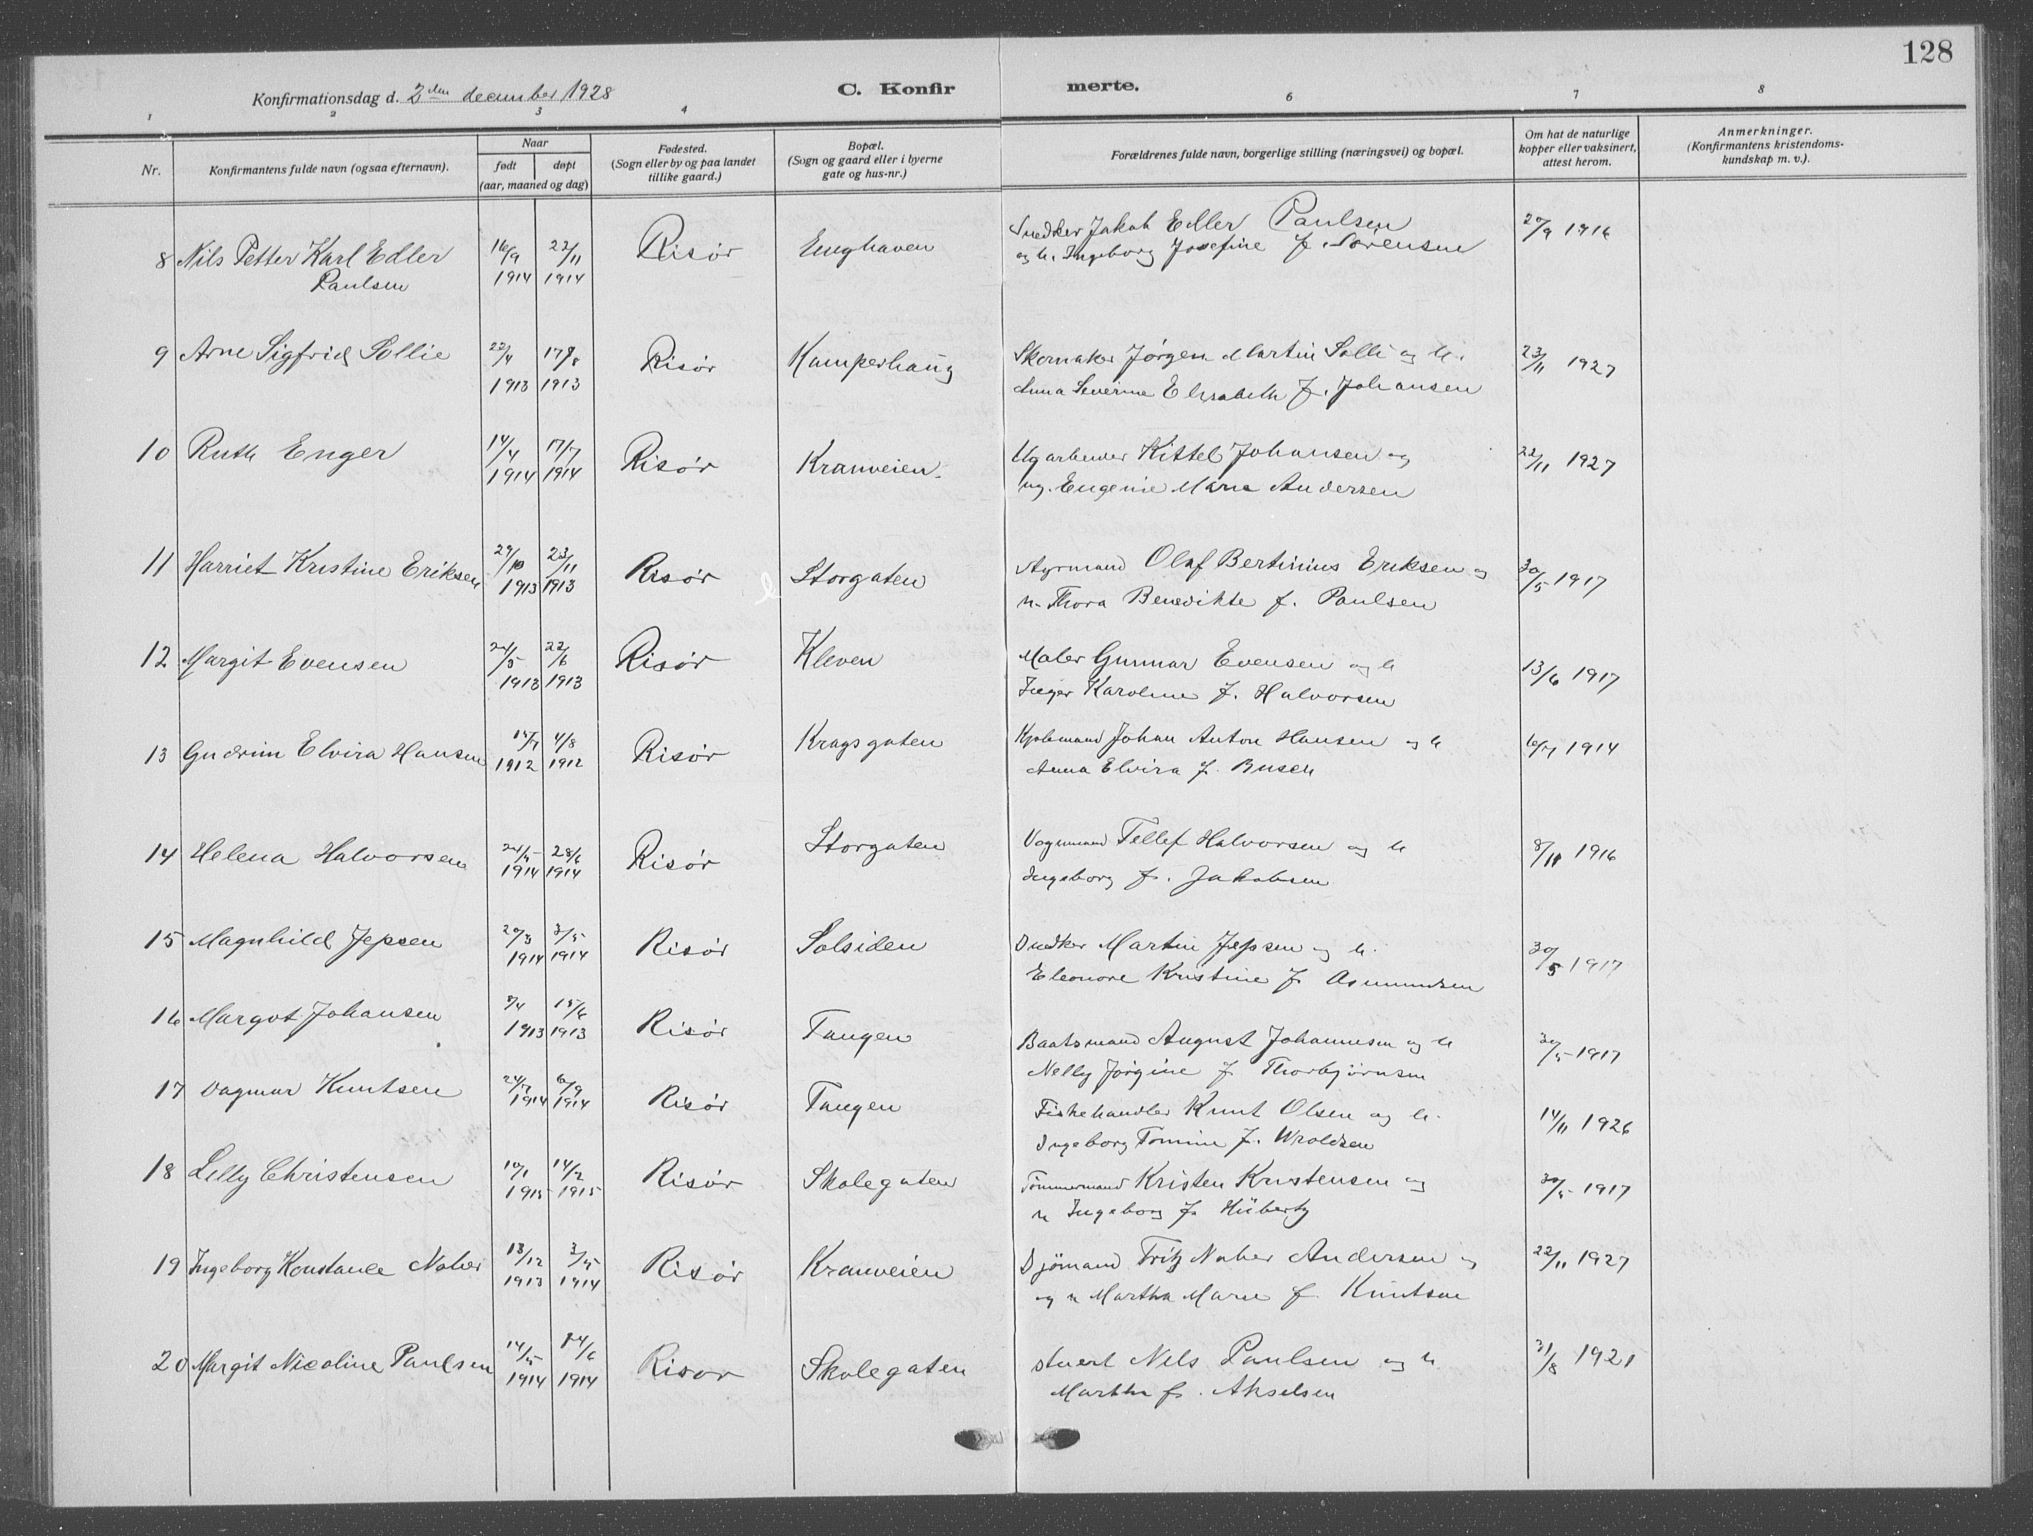 128
Konfirmationsdag d. 2den december 1928
C. Konfirmerte.
1 2 3 4 6 7 8
Nr.
Konfirmantens fulde navn (ogsaa efternavn).
Naar
født døpt
(aar, maaned og dag)
Fødested.
(Sogn eller by og paa landet
tillike gaard.)
Bopæl.
(Sogn og gaard eller i byerne
gate og hus-nr.)
Forældrenes fulde navn, borgerlige stilling (næringsvei) og bopæl.
Om hat de naturlige
kopper eller vaksinert,
attest herom.
Anmerkninger.
(Konfirmantens kristendoms-
kundskap m. v.).
8 Nils Petter Karl Edler 16/9 22/11 Risør Enghaven Snedker Jakob Edler Paulsen 20/9 1916
Paulsen 1914 1914 og h. Ingeborg Josefine f. Sørensen
9 Arne Sigfrid Sollie 22/4 17/8 Risør Kamperhaug Skomaker Jørgen Martin Solli og h. 23/11 1927
1913 1913 Anna Severine Elisabeth f. Johansen
10 Ruth Enger 14/4 17/7 Risør Kranveien. Ugarbeider Kittel Johansen og 22/11 1927
1914 1914 ug. Eugenie Marie Andersen
11 Harriet Kristine Eriksen 29/10 23/11 Risør Storgaten Olaf Bertinius Eriksen og 30/5 1917
1913 1913 h. Thora Benedikte f. Paulsen
12 Margit Evensen 24/5 22/6 Risør Kleven Maler Gunnar Evensen og h 13/6 1917
1913 1913 Inger Karoline f. Halvorsen
13 Gudrun Elvira Hansen 4/8 Risør Kragsgaten Johan Anton Hansen og h 1914
1912 1912 Anna Elvira f. Busch
14 Helena Halvorsen 28/6 Risør Storgaten Vognmand Tellef Halvorsen og h 8/11 1916
1914 1914 Ingeborg f. Jakobsen
15 Magnhild Jepsen 20/3 3/5 Risør Solsiden Snedker Martin Jepsen og h. 30/5 1917
1914 1914 Eleonore Kristine f. Asmundsen
16 Margot Johansen 15/6 Risør Tangen Baatsmand August Johannesen og h 30/5 1917
1913 1913 Nelly Jørgine f. Thorbjørnsen
17 Dagmar Knutsen 24/7 6/9 Risør Tangen Fiskehandler Knut Olsen og h. 14/11 1926
1914 1914 Ingeborg Tomine f. Wroldsen
18 Lilly Christensen 10/1 14/2 Risør Skolegaten Tømmermand Kristen Kristensen og 30/5 1917
1915 1915 h Ingeborg f. Hüberty
19 Ingeborg Konstance Naher 13/12 3/5 Risør Kranveien Sjømand Fritz Naher Andersen og 22/11 1927
1913 1914 og h Martha Marie f. Knutsen
20 Margit Nicoline Paulsen 14/5 14/6 Risør Skolegaten stuert Nils Paulsen og h. 31/8 1921
1914 1914 Martha f. Akselsen